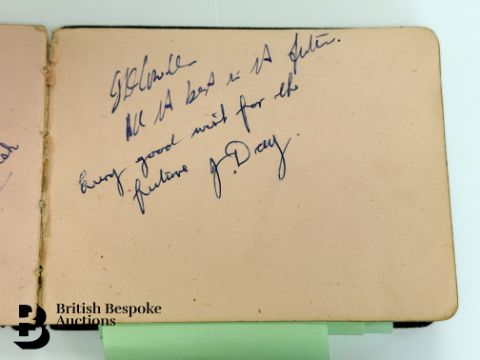 All the best in the future.
Every good wish for the
future J. Day.
British Bespoke
Auctions